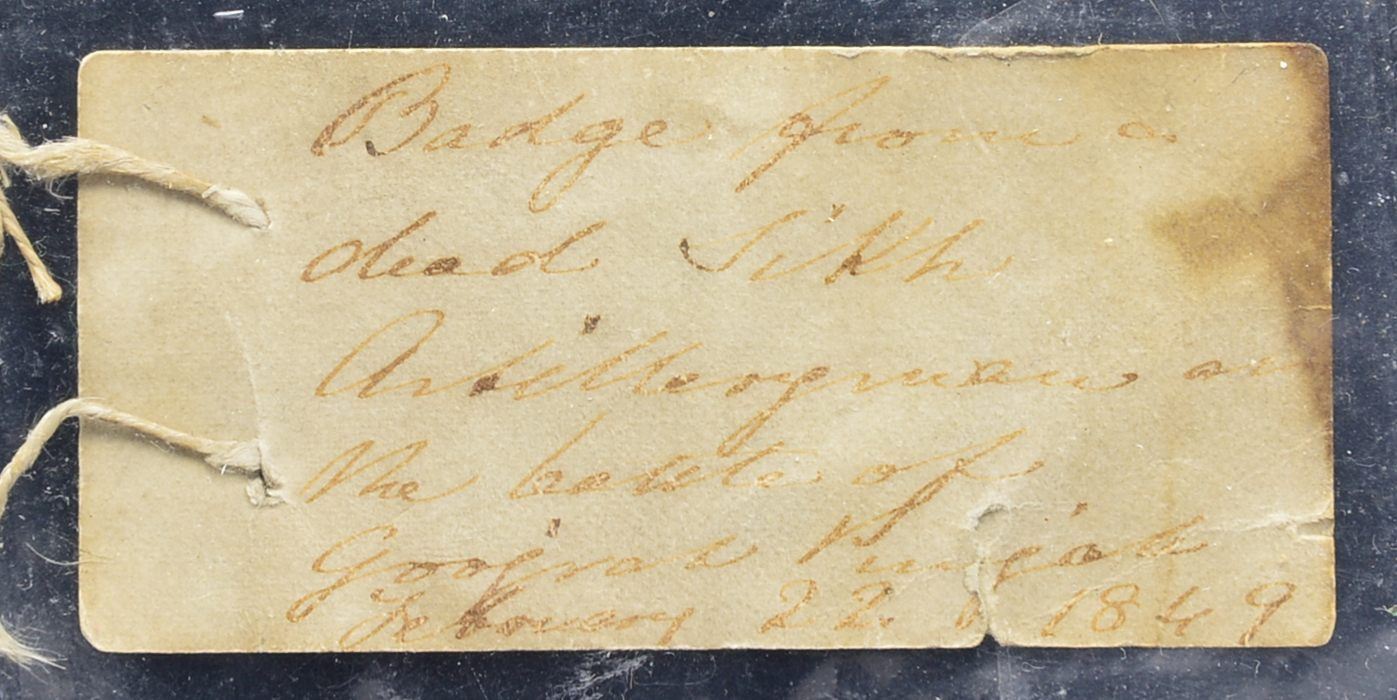 Badge from a
dead Sikh
Artilleryman on
the battle of
Goojrat Punjab
February 22 1849